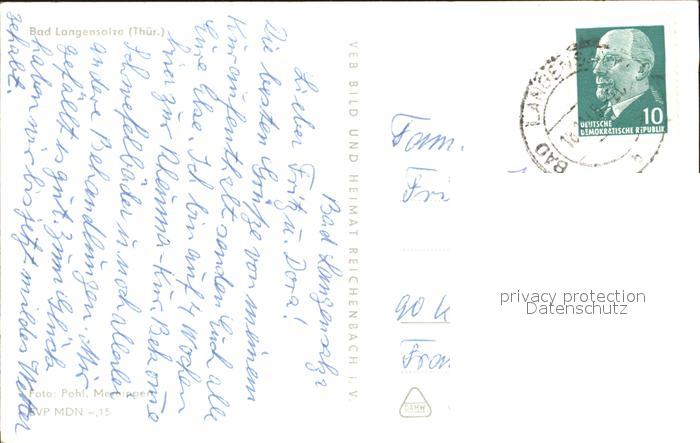 Bad Langensalza (Thür.)
Bad Langensalza
Lieber Fritz u. Dora!
Die besten Grüße von meinem
Kuraufenthalt senden Euch alle
Eure Else. Ich bin auf 4 Wochen
hier zur Rheuma-Kur. Bekomme
Schwefelbäder u. noch allerlei
andere Behandlungen. Mir
gefällt es gut. Zum Glück
haben wir bis jetzt mildes Wetter
gehabt.
Foto: Pohl,
EVP MDN -,15
VEB BILD UND HEIMAT REICHENBACH i. V.
BAD LANGENS
10
DEUTSCHE
DEMOKRATISCHE REPUBLIK
Fam.
Fri
90 K
Fran
privacy protection
Datenschutz